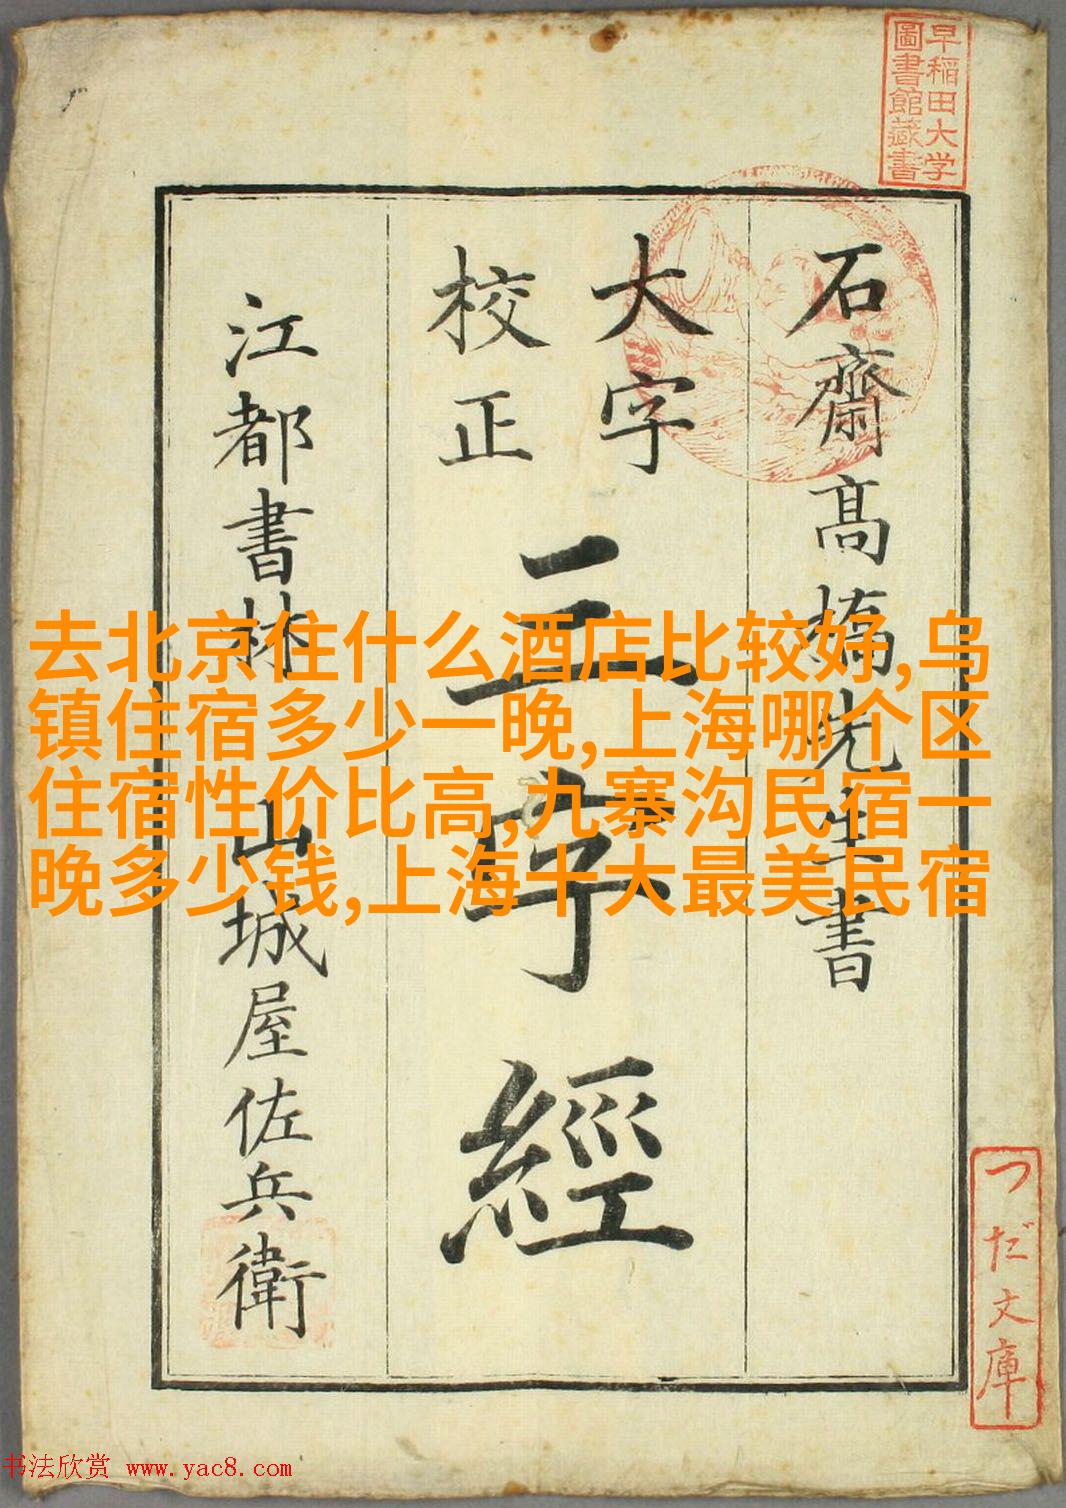 早稲田大学
圖書館藏書
石齋高橋先生書
大字
校正
三字經
江都書林
山城屋佐兵衛
去北京住什么酒店比较好,乌
镇住宿多少一晚,上海哪个区
住宿性价比高,九寨沟民宿一
晚多少钱,上海十大最美民宿
つだ文庫
书法欣赏 www.yac8.com